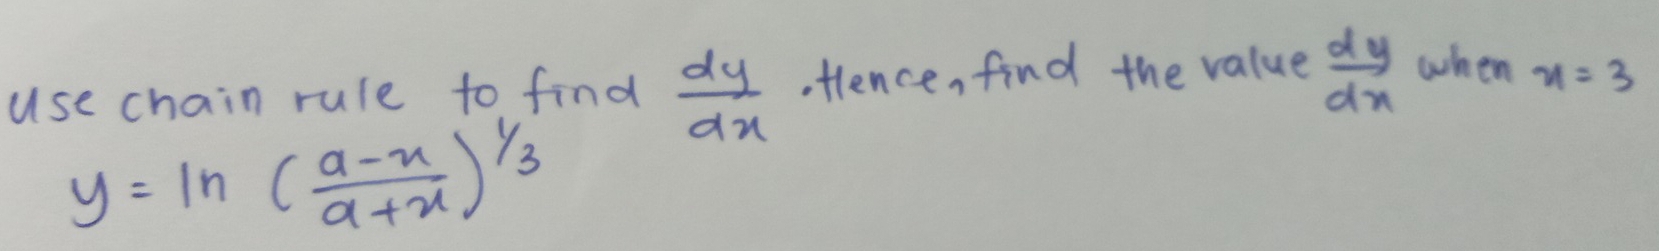 use chain rule to find dy/dx . Hence, find the value dy/dx when x = 3
y = ln ( a-x / a+x )^1/3